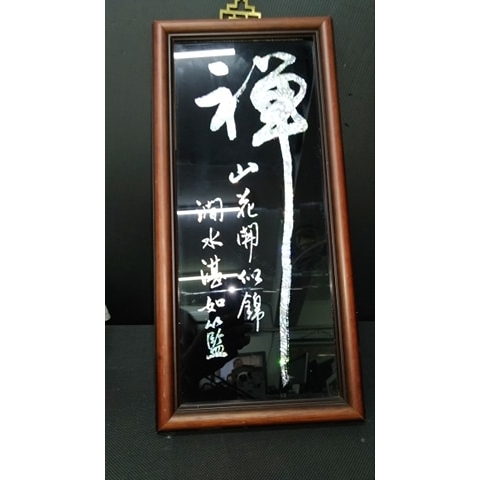 禪
山花開似錦
澗水湛如籃